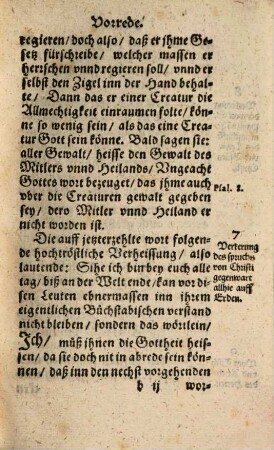 Vorrede.
regieren/ doch also/ daß er jhme Ge-
setz fürschreibe/ welcher massen er
herrschen vnnd regieren soll/ vnnd er
selbst den Zigel inn der Hand behal-
te/ Dann das er einer Creatur die
Allmechtigkeit einraumen solte/ kön-
ne so wenig sein/ als das eine Crea-
tur Gott sein könne. Bald sagen sie:
aller Gewalt/ heisse den Gewalt des
Mitlers vnnd Heilands/ Vngeacht
Gottes wort bezeuget/ das jhme auch
vber die Creaturen gewalt gegeben
Psal. 8.
sey/ dero Mitler vnnd Heiland er
nicht worden ist.
Die auff jetzterzehlte wort folgen-
de hochtröstliche Verheissung/ also
lautende: Sihe ich bin bey euch alle
tag/ biß an der Welt ende/ kan vor di-
sen Leuten ebnermassen inn jhrem
eigentlichen Büchstabischen verstand
nicht bleiben/ sondern das wörtlein/
7
Verkerung
des spruchs
von Christi
gegenwart
allhie auff
Erden.
Ich/ müß jhnen die Gottheit heis-
sen/ da sie doch nit in abrede sein kön-
nen/ daß inn den nechst vorgehenden
b ij
wor-